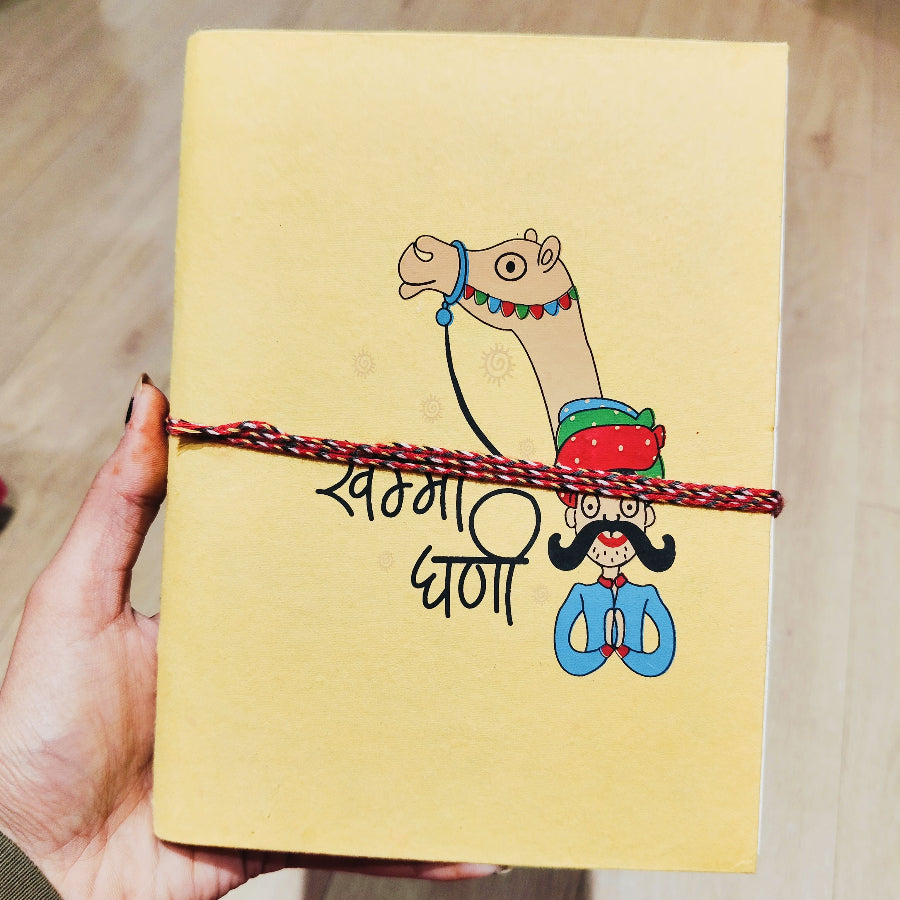 खम्मा
घणी